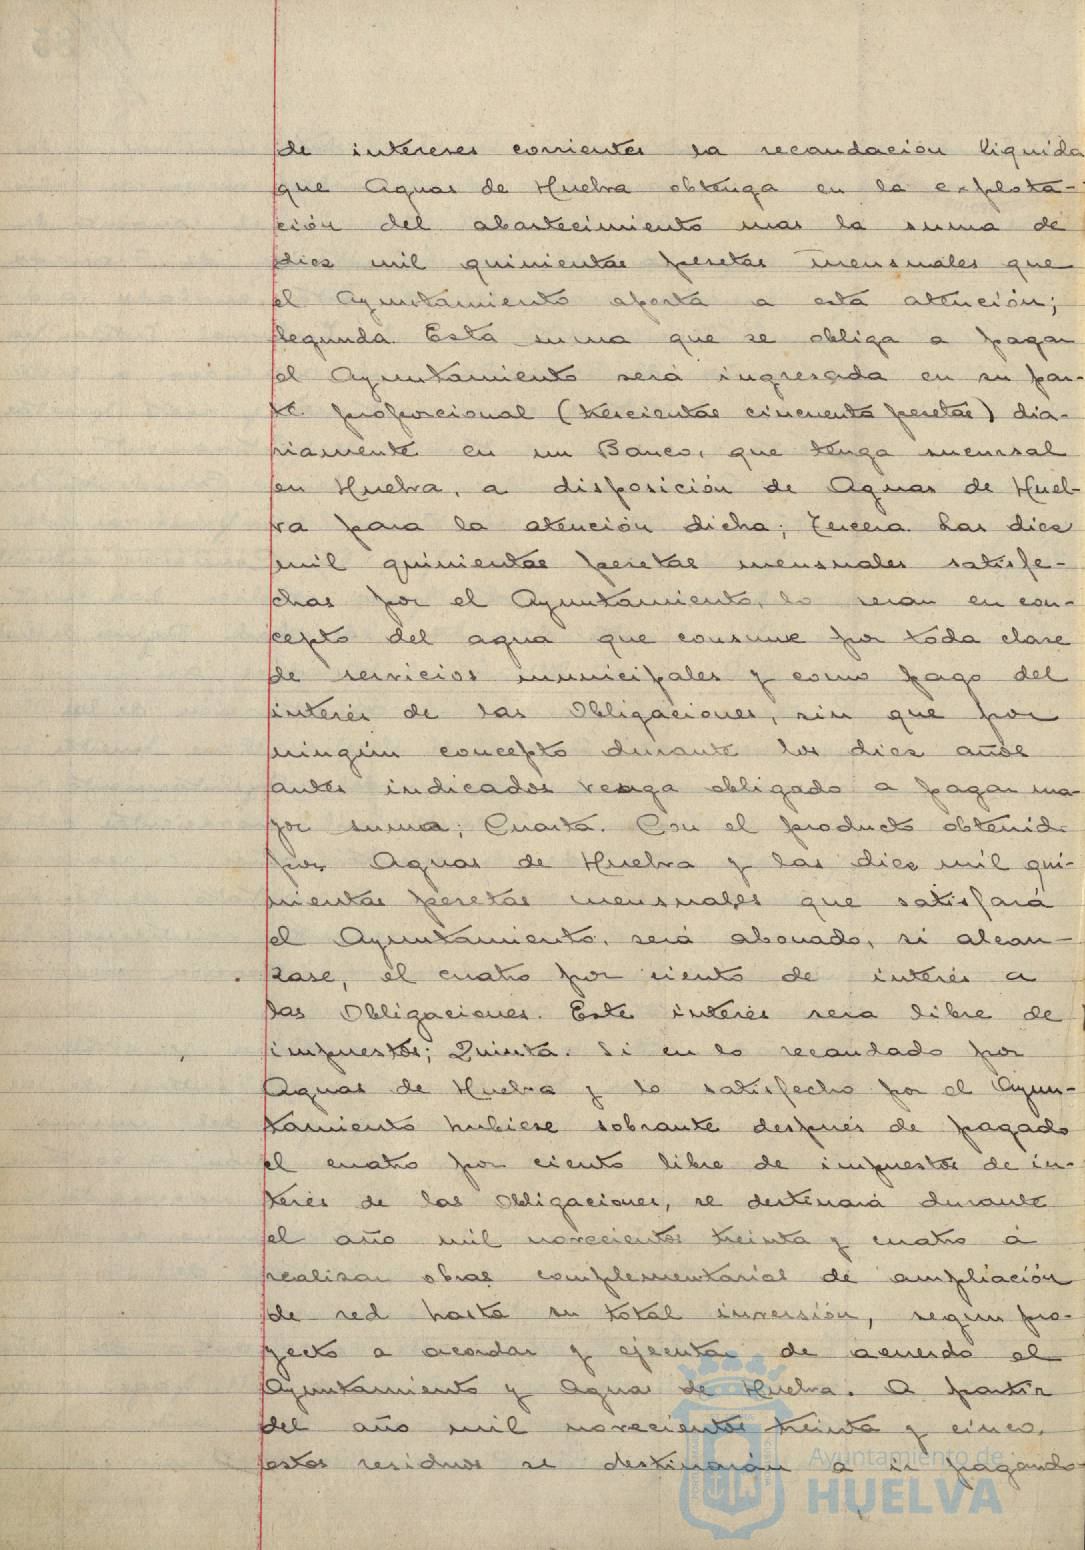 de intereses corrientes la recaudación líquida
que Aguas de Huelva obtenga en la explota-
ción del abastecimiento mas la suma de
diez mil quinientas pesetas mensuales que
el Ayuntamiento aporta a esta atención;
Segunda. Esta suma que se obliga a pagar
el Ayuntamiento será ingresada en su par-
te proporcional (trescientas cincuenta pesetas) dia-
riamente en un Banco, que tenga sucursal
en Huelva, a disposición de Aguas de Huel-
va para la atención dicha; Tercera. Las diez
mil quinientas pesetas mensuales satisfe-
chas por el Ayuntamiento, lo seran en con-
cepto del agua que consume por toda clase
de servicios municipales y como pago del
interés de las Obligaciones, sin que por
ningún concepto durante los diez años
antes indicados venga obligado a pagar ma-
yor suma; Cuarta. Con el producto obtenido
por Aguas de Huelva y las diez mil qui-
nientas pesetas mensuales que satisfará
el Ayuntamiento, será abonado, si alcan-
zase, el cuatro por ciento de interés a
las Obligaciones. Este interés sera libre de
impuestos; Quinta. Si en lo recaudado por
Aguas de Huelva y lo satisfecho por el Ayun-
tamiento hubiese sobrante después de pagado
el cuatro por ciento libre de impuestos de in-
terés de las Obligaciones, se destinará durante
el año mil novecientos treinta y cuatro á
realizar obras complementarias de ampliación
de red hasta su total inversión, segun pro-
yecto a acordar y ejecutar de acuerdo el
Ayuntamiento y Aguas de Huelva. A partir
del año mil novecientos treinta y cinco,
estos residuos se destinarán a ir pagando
Ayuntamiento de
HUELVA